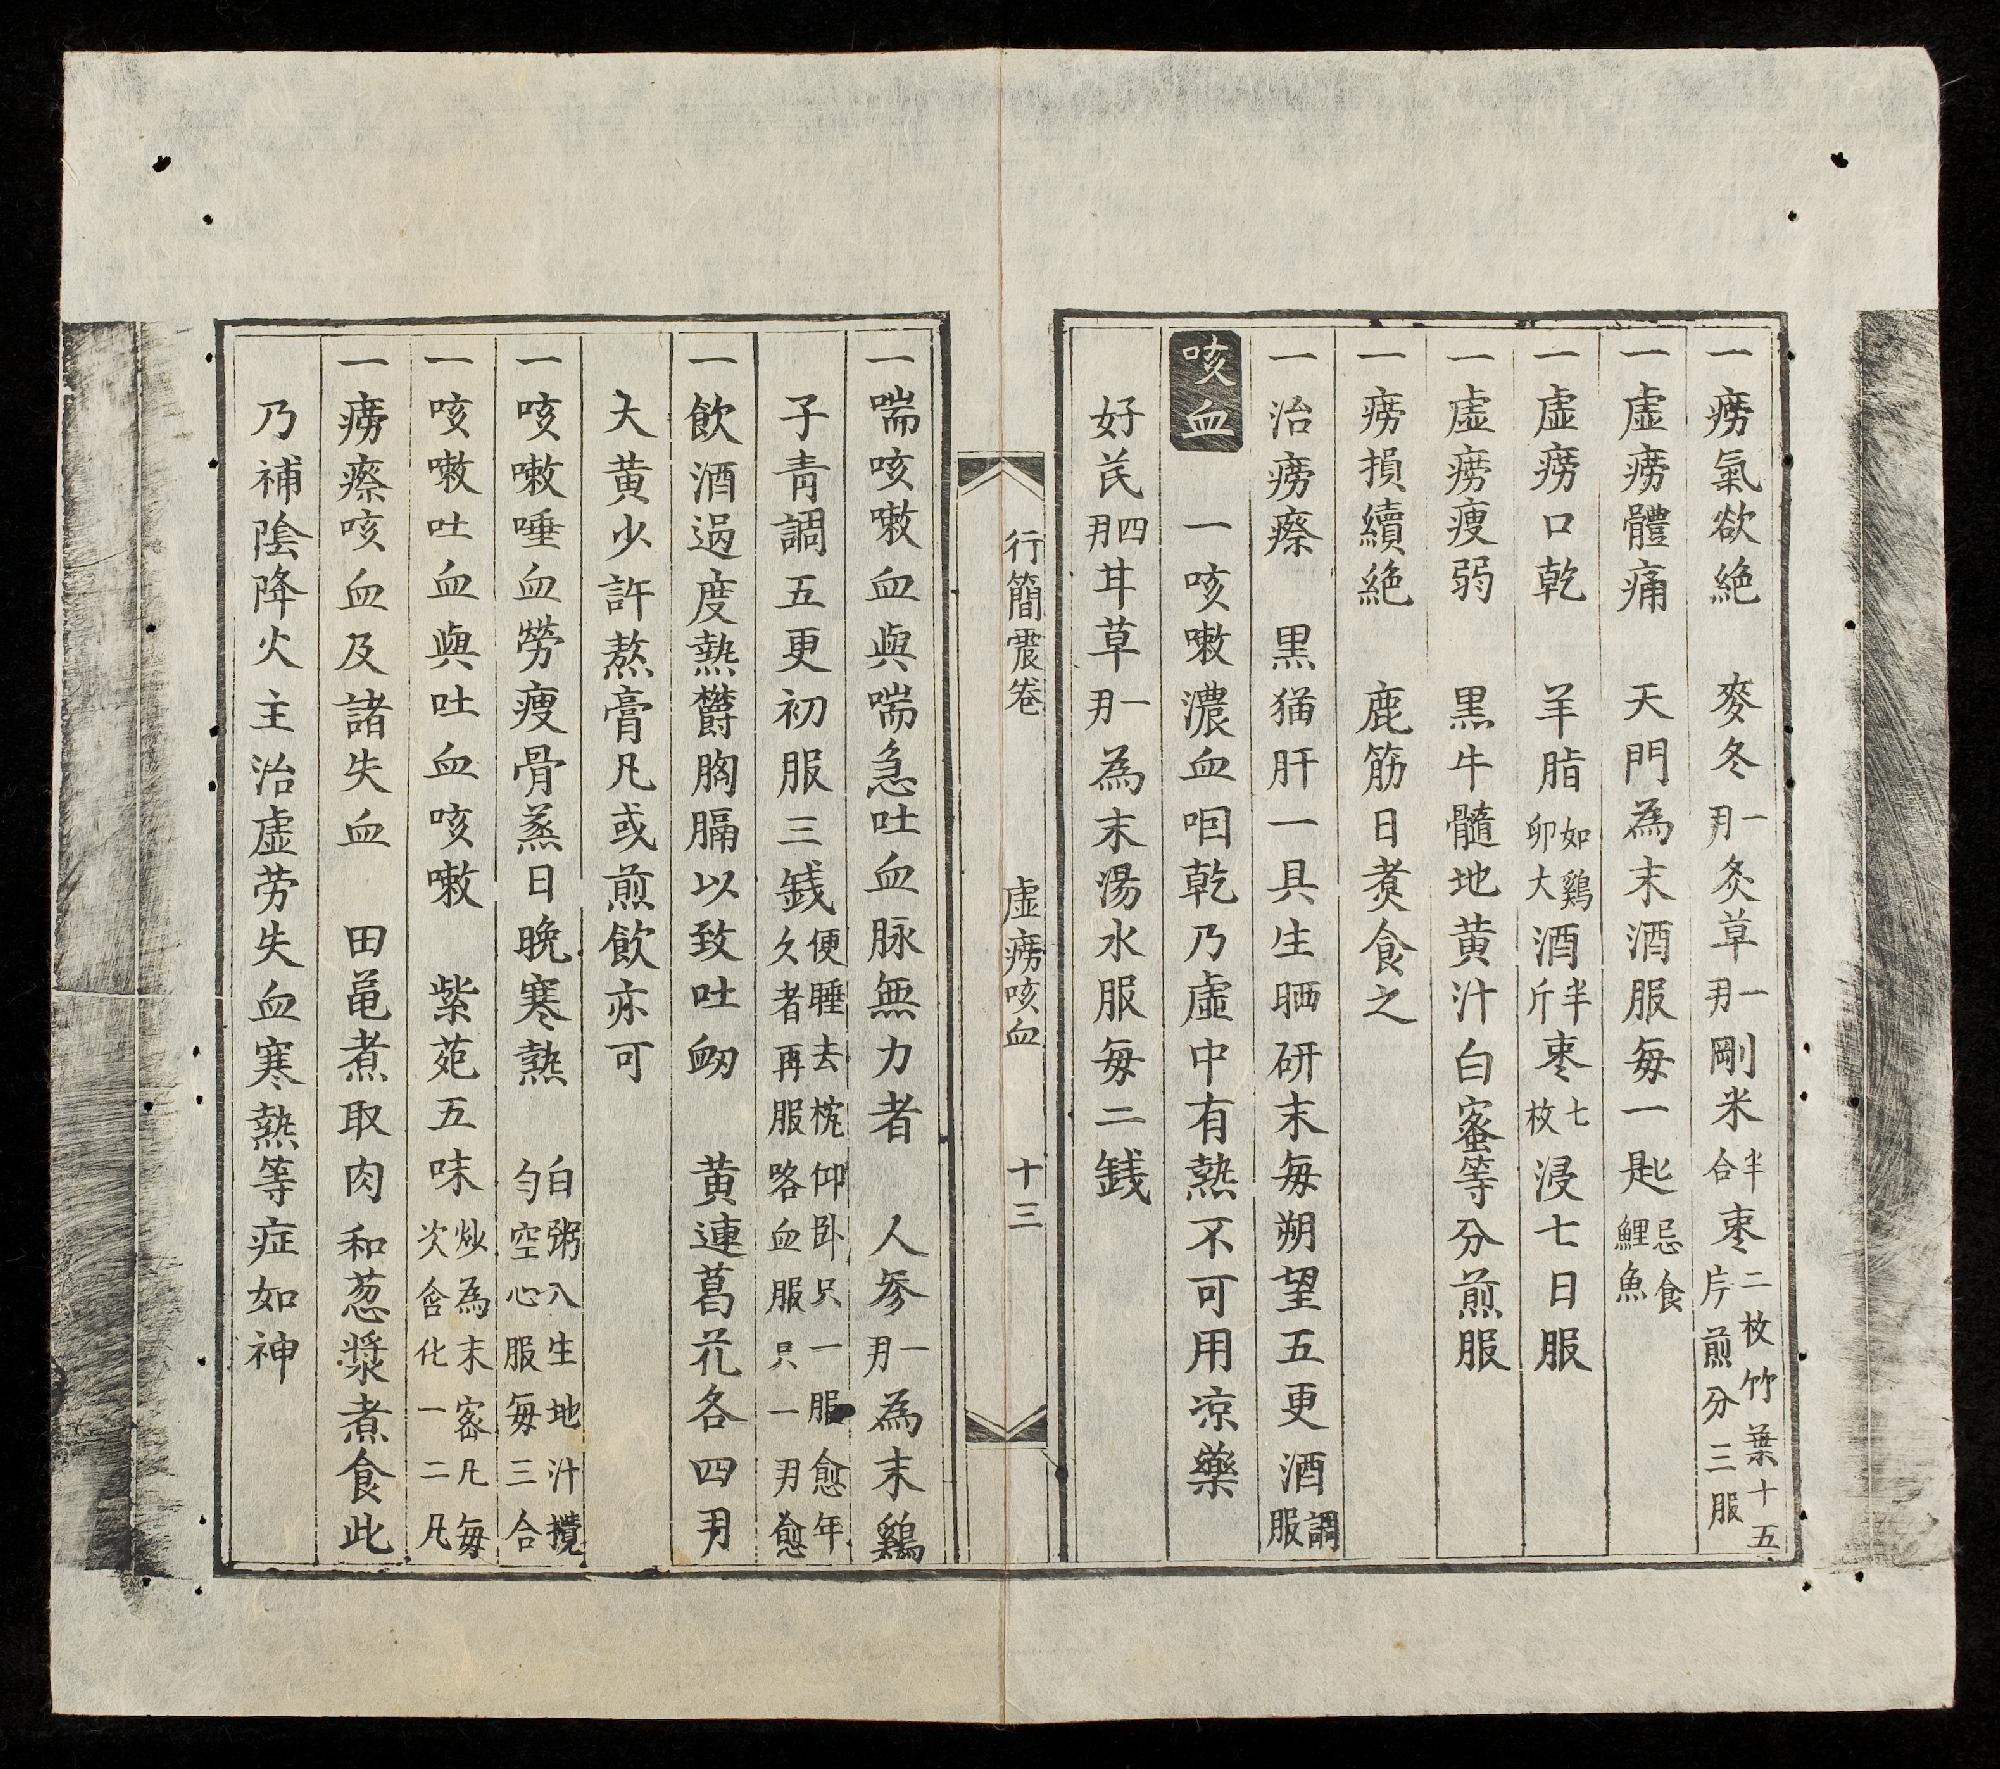 一癆氣欲絶　麥冬一刄炙草一刄剛米半合枣二枚竹葉十五片煎分三服
一虛癆體痛　天門為末酒服每一匙忌食鯉魚
一虛癆口乾　羊脂如鷄卵大酒半斤枣七枚浸七日服
一虛癆瘦弱　黒牛髓地黄汁白蜜等分煎服
一癆損續絶　鹿筋日煑食之
一治癆瘵　黒猫肝一具生晒研末每朔望五更酒調服
咳血　一咳嗽濃血咽乾乃虛中有熱不可用凉藥
好芪四刄甘草一刄為末湯水服每二銭
行簡震卷　虛癆咳血　十三
一喘咳嗽血與喘急吐血脉無力者　人參一刄為末鷄
子青調五更初服三銭便睡去枕仰卧只一服愈年久者再服咯血服只一刄愈
一飲酒過度熱欝胸膈以致吐衂　黄連葛花各四刄
大黄少許熬膏凡或煎飲亦可
一咳嗽唾血勞瘦骨蒸日晩寒熱　白粥入生地汁攪勻空心服每三合
一咳嗽吐血與吐血咳嗽　紫菀五味炒為末密凡每次含化一二凡
一癆瘵咳血及諸失血　田黽煮取肉和葱漿煮食此
乃補陰降火主治虛劳失血寒熱等症如神